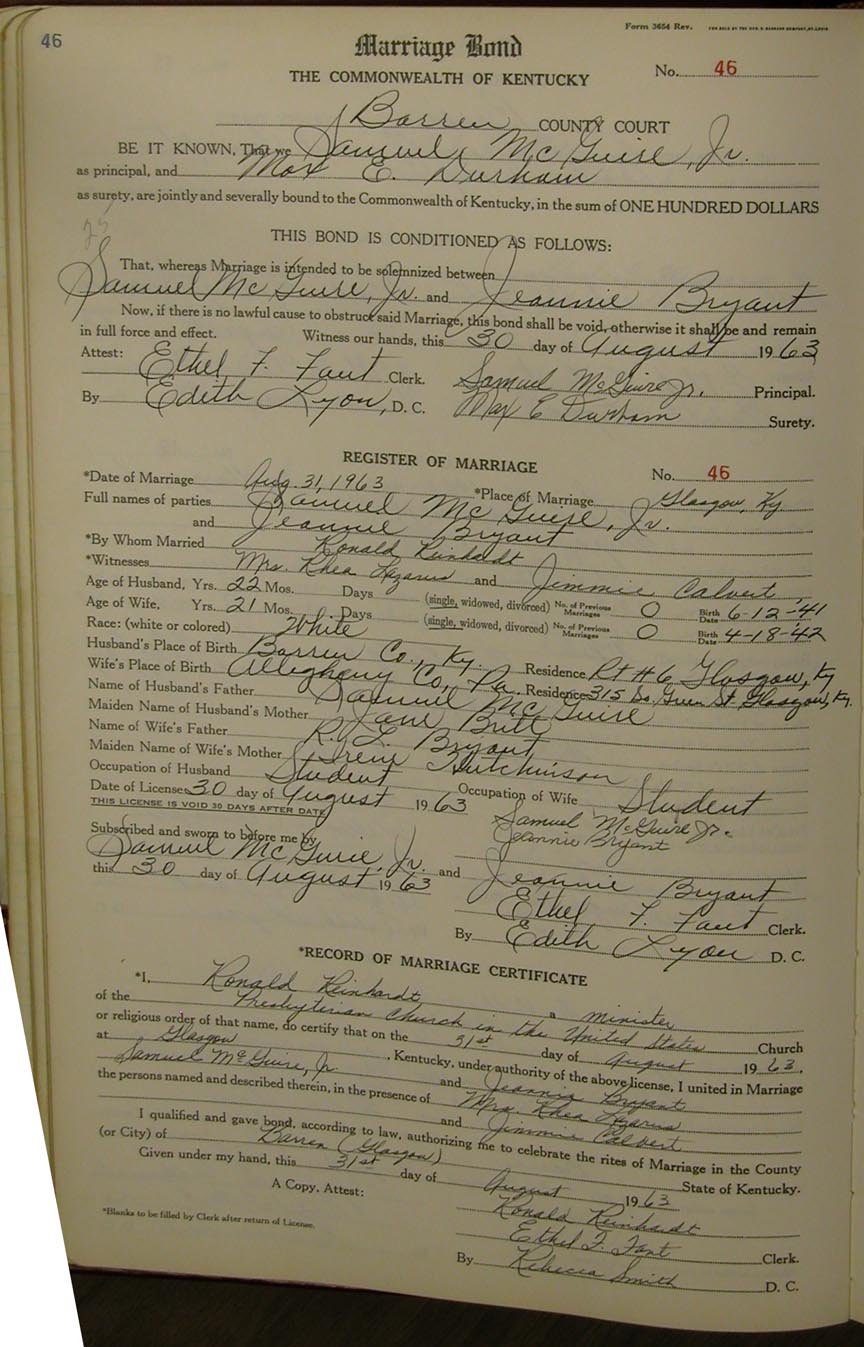 46
Form 3654 Rev.
Marriage Bond
THE COMMONWEALTH OF KENTUCKY
No. 46
Barren COUNTY COURT
BE IT KNOWN, That we Samuel McGuire, Jr.
as principal, and Max E. Durham
as surety, are jointly and severally bound to the Commonwealth of Kentucky, in the sum of ONE HUNDRED DOLLARS
THIS BOND IS CONDITIONED AS FOLLOWS:
That, whereas Marriage is intended to be solemnized between
Samuel McGuire, Jr. and Jeannie Bryant
Now, if there is no lawful cause to obstruct said Marriage, this bond shall be void, otherwise it shall be and remain
in full force and effect. Witness our hands, this 30 day of August 1963
Attest: Ethel F. Fant Clerk. Samuel McGuire Jr. Principal.
By Edith Lyon, D. C. Max E Durham Surety.
REGISTER OF MARRIAGE No. 46
*Date of Marriage Aug. 31, 1963 *Place of Marriage Glasgow, Ky
Full names of parties Samuel McGuire, Jr.
and Jeannie Bryant
*By Whom Married Ronald Reinhardt
*Witnesses Mrs. Rhea Lazarus and Jimmie Calvert
Age of Husband, Yrs. 22 Mos. Days (single, widowed, divorced) No. of Previous Marriages 0 Birth Date 6-12-41
Age of Wife, Yrs. 21 Mos. Days (single, widowed, divorced) No. of Previous Marriages 0 Birth Date 4-18-42
Race: (white or colored) White
Husband's Place of Birth Barren Co., Ky. Residence Rt #6 Glasgow, Ky
Wife's Place of Birth Allegheny Co, Pa. Residence 315 So. Green St. Glasgow, Ky.
Name of Husband's Father Samuel McGuire
Maiden Name of Husband's Mother Jane Britt
Name of Wife's Father R. L. Bryant
Maiden Name of Wife's Mother Irene Hutchinson
Occupation of Husband Student Occupation of Wife Student
Date of License 30 day of August 1963
THIS LICENSE IS VOID 30 DAYS AFTER DATE
Samuel McGuire Jr.
Jeannie Bryant
Subscribed and sworn to before me by
Samuel McGuire, Jr. and Jeannie Bryant
this 30 day of August 1963
Ethel F. Fant Clerk.
By Edith Lyon D. C.
*RECORD OF MARRIAGE CERTIFICATE
*I, Ronald Reinhardt, a minister
of the Presbyterian Church in the United States Church
or religious order of that name, do certify that on the 31st day of August 1963,
at Glasgow, Kentucky, under authority of the above license, I united in Marriage
Samuel McGuire, Jr and Jeannie Bryant
the persons named and described therein, in the presence of Mrs. Rhea Lazarus
and Jimmie Calvert
I qualified and gave bond, according to law, authorizing me to celebrate the rites of Marriage in the County
(or City) of Barren (Glasgow) State of Kentucky.
Given under my hand, this 31st day of August 1963
A Copy, Attest: Ronald Reinhardt
Ethel F. Fant Clerk.
*Blanks to be filled by Clerk after return of License.
By Rebecca Smith D. C.